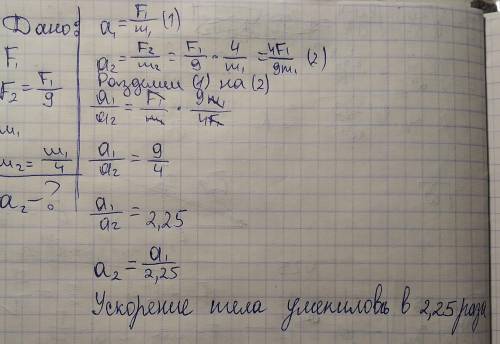 Дано:
F₁
F₂ = F₁/9
m₁
m₂ = m₁/4
a₂ - ?
a₁ = F₁/m₁ (1)
a₂ = F₂/m₂ = F₁/9 · 4/m₁ = 4F₁/9m₁ (2)
Разделим (1) на (2)
a₁/a₂ = F₁/m₁ · 9m₁/4F₁
a₁/a₂ = 9/4
a₁/a₂ = 2,25
a₂ = a₁/2,25
Ускорение тела уменшилось в 2,25 раза